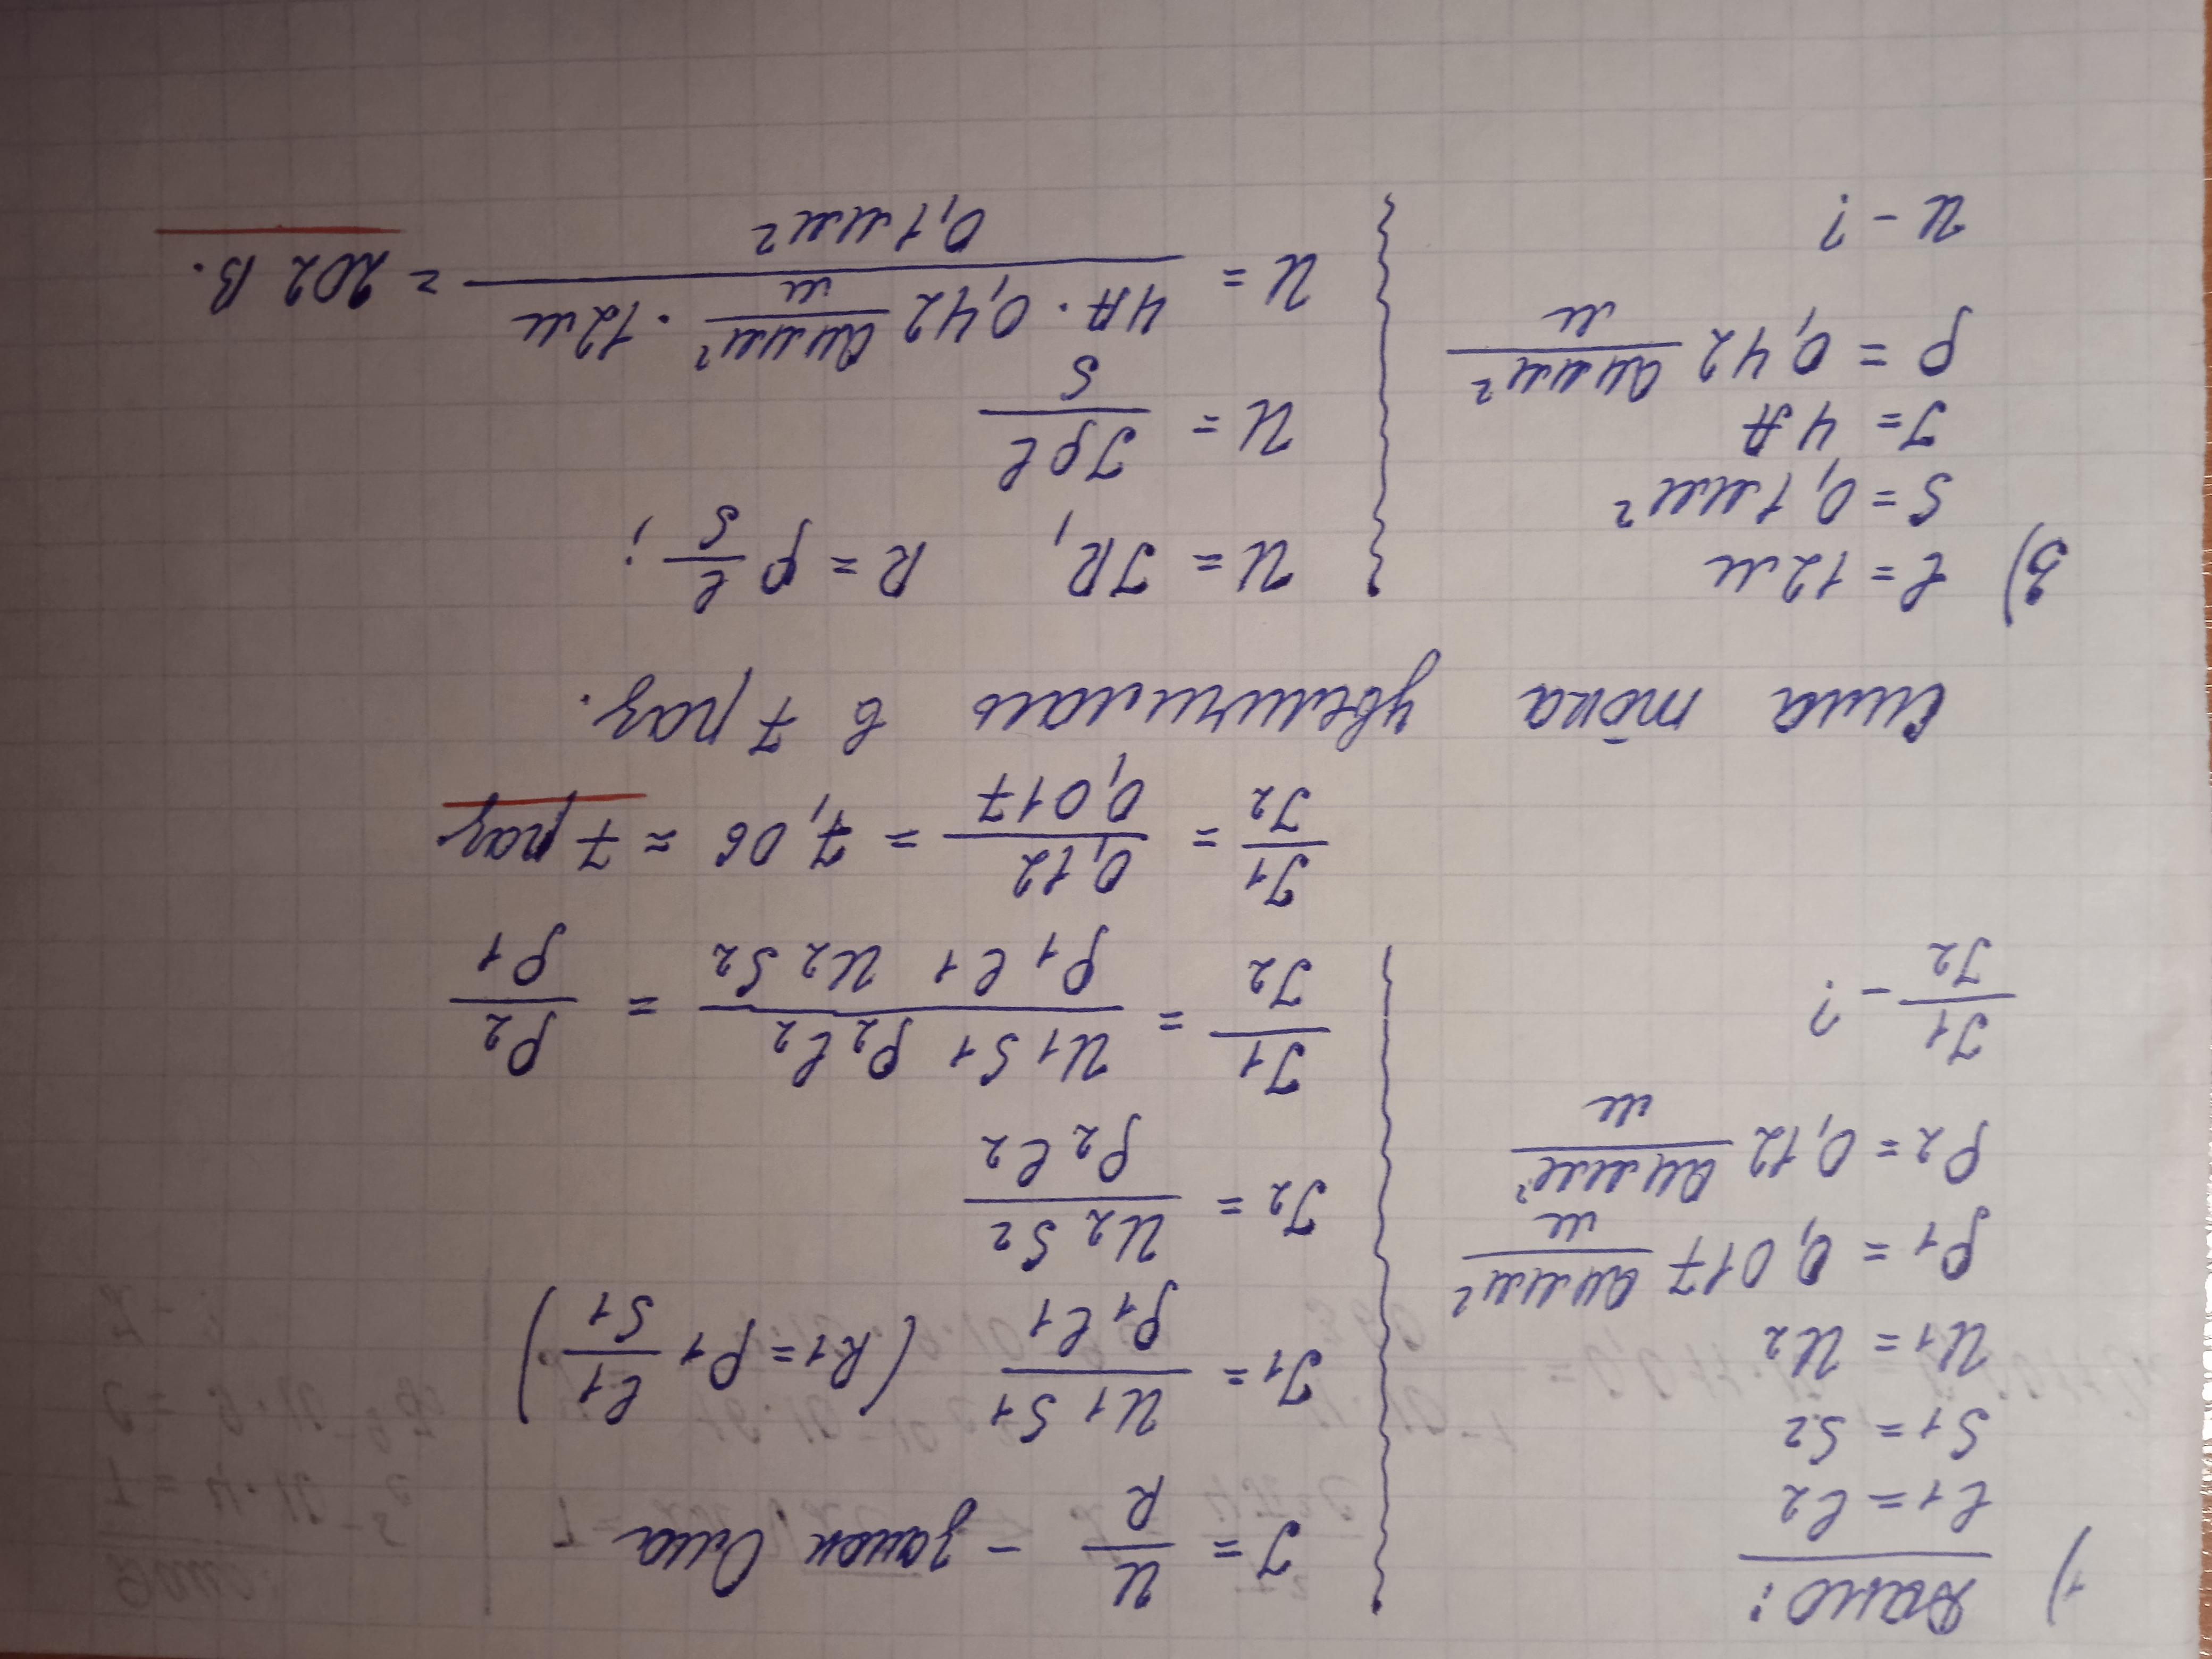 1) Дано:
l1 = l2
S1 = S2
U1 = U2
ρ1 = 0,017 Ом мм²/м
ρ2 = 0,12 Ом мм²/м
J1/J2 - ?
J = U/R - закон Ома
J1 = U1 S1/ρ1 l1 (R1 = ρ1 l1/S1)
J2 = U2 S2/ρ2 l2
J1/J2 = U1 S1 ρ2 l2/ρ1 l1 U2 S2 = ρ2/ρ1
J1/J2 = 0,12/0,017 = 7,06 ≈ 7 раз
Сила тока увеличилась в 7 раз.
3) l = 12 м
S = 0,1 мм²
J = 4 А
ρ = 0,42 Ом мм²/м
U - ?
U = JR, R = ρ l/S ;
U = Jρl/S
U = 4А · 0,42 Ом мм²/м · 12 м/0,1 мм² = 202 В.